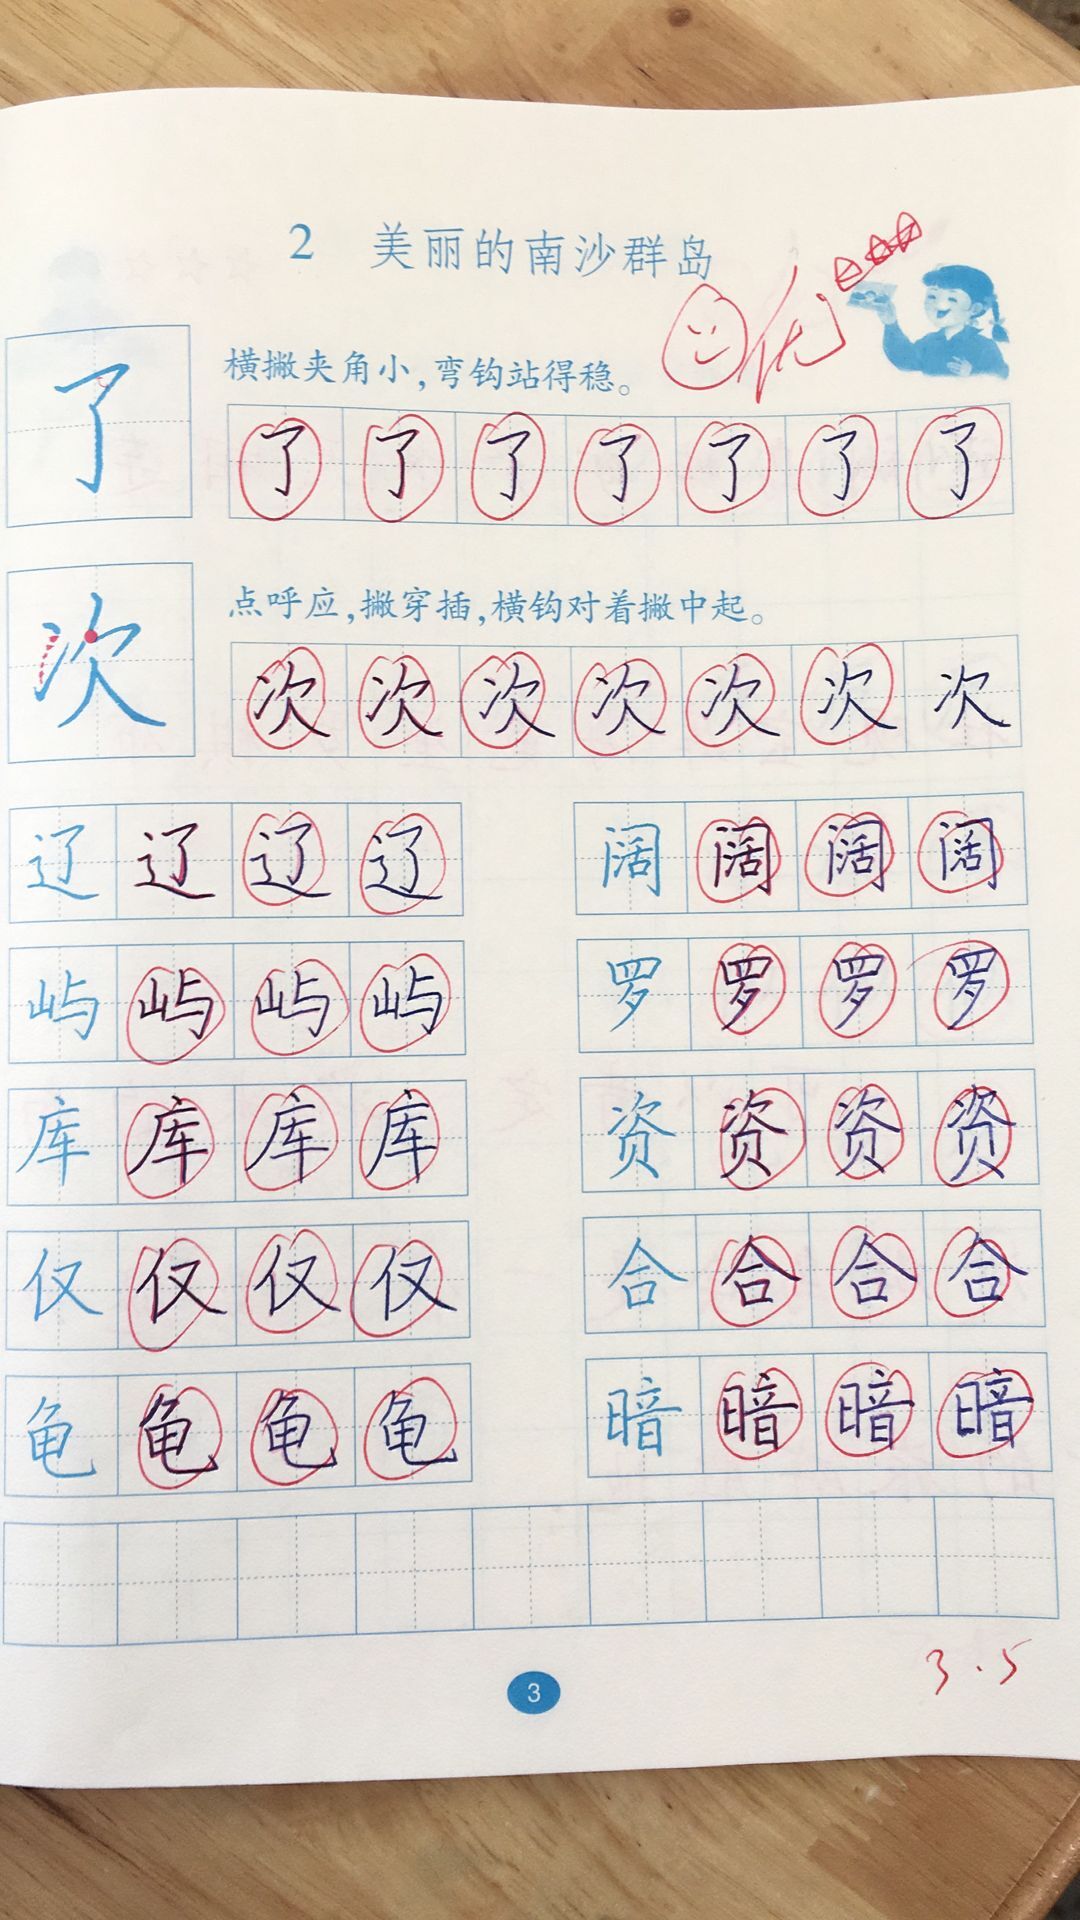 2 美丽的南沙群岛
优
了
横撇夹角小,弯钩站得稳。
了 了 了 了 了 了 了
次
点呼应,撇穿插,横钩对着撇中起。
次 次 次 次 次 次 次
辽 辽 辽 辽 阔 阔 阔 阔
屿 屿 屿 屿 罗 罗 罗 罗
库 库 库 库 资 资 资 资
仅 仅 仅 仅 合 合 合 合
龟 龟 龟 龟 暗 暗 暗 暗
3.5
3